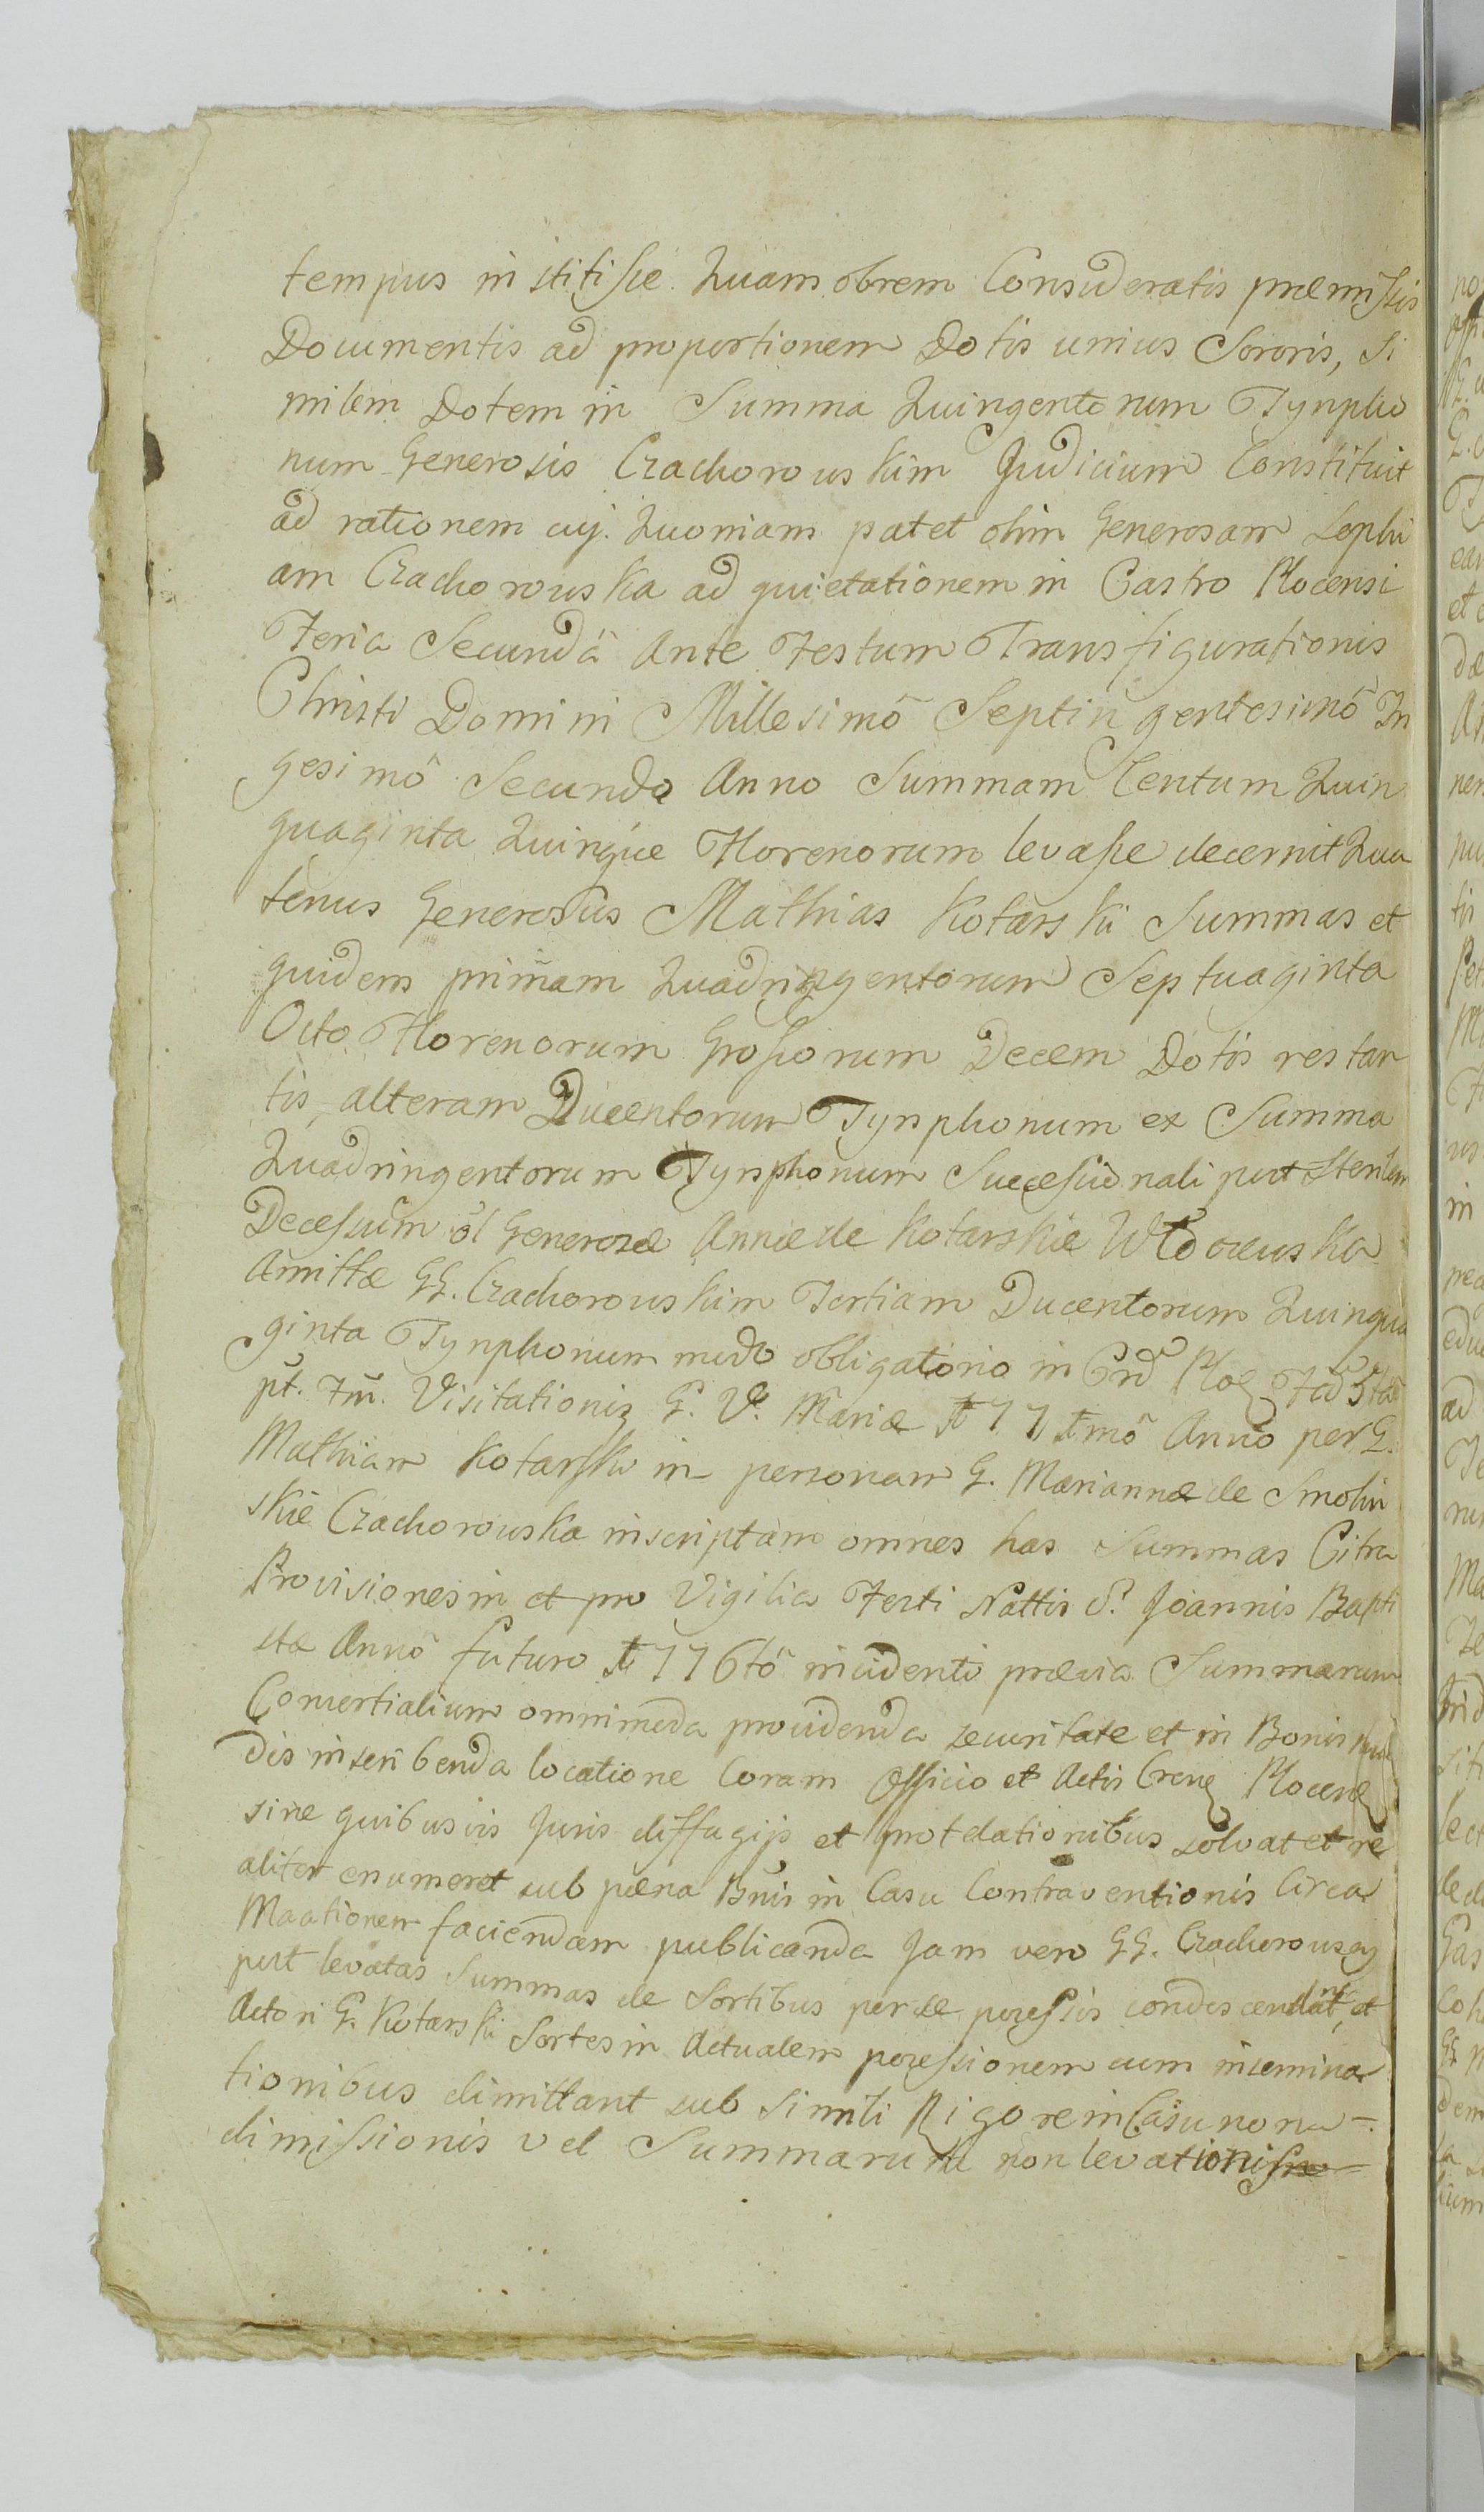 tempus institisse. Quam obrem Consideratis praemissis
Documentis ad proportionem Dotis unius Sororis, Si
milem Dotem in Summa Quingentorum Tynpho
num Generosis Czachorouskim Judicium Constituit
ad rationem cuj. Quoniam patet olim Generosam Sophi
am Czachorouska ad quietationem in Castro Plocensi
Feria Secundâ Ante Festum Transfigurationis
Christi Domini Millesimô Septingentesimô Tri
gesimô Secundo Anno Summam Centum Quin
quaginta Quinque Florenorum levasse decernit Qua
tenus Generosus Mathias Kotarski Summas et
quidem primam Quadringentorum Septuaginta
Octo Florenorum Grossorum Decem Dotis restan
tis, alteram Ducentorum Tynphonum ex Summa
Quadringentorum Tynphonum Successionali post Sterilem
Decessum ol Generosae Annae de Kotarskie Włoczeuska
Amittae GG. Czachorouskim Tertiam Ducentorum Quinqua
ginta Tynphonum modo obligatorio in Plo
pt. Visitationis B. V. Mariae 177 Anno per G.
Mathiam Kotarski in personam G. Mariannae de Smolin
skie Czachorouska inscriptam omnes has Summas Citra
Provisiones in et pro Vigilia Festi Nattis S. Joannis Bapti
stae Annô futuro 1776tô incidenti praevia Summarum
omnimoda providenda securitate et in Bonis
dis inscribenda locatione Coram Officio et Actis Plocen
sine quibusvis Juris diffugijs et protelationibus solvat et re
aliter enumeret sub paena Bnis in Casu Contraventionis Circa
faciendam publicanda Jam vero GG. Czachorouscy
post levatas Summas de Sortibus per se possessis condescendant, et
Actori G. Kotarski Sortes in Actualem possessionem cum insemina
tionibus dimittant sub simili Rigore in Casu non
dimissionis vel Summarum non levationis